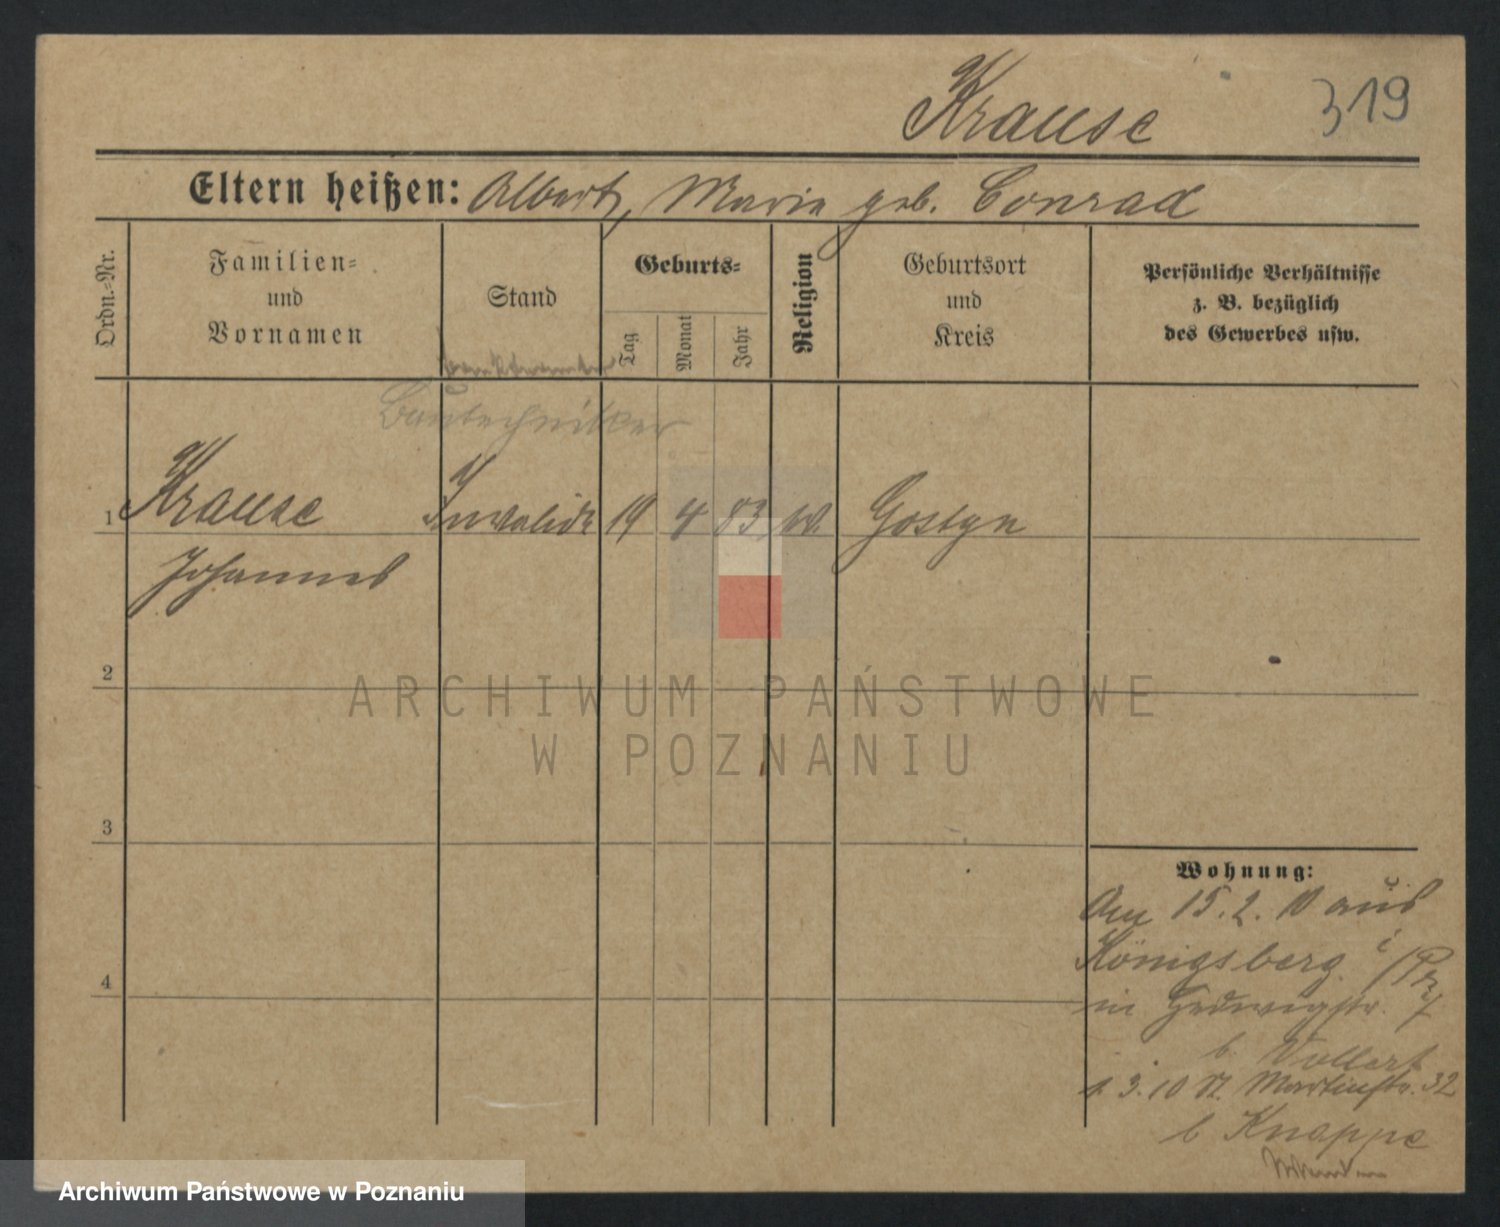 Krause 319
Eltern heißen: Albert, Marie geb. Conrad
Ordn.-Nr. Familien- und Vornamen Stand Geburts- Tag Monat Jahr Religion Geburtsort und Kreis Persönliche Verhältnisse z. B. bezüglich des Gewerbes usw.
Bautechniker
1 Krause Invalide 19 4 83 Gostyn
Johannes
2
ARCHIWUM PAŃSTWOWE
W POZNANIU
3
Wohnung:
Am 15.2.10 aus
Königsberg i/Pr
4
in Hedwigstr.
b. Vollert
1.3.10 St. Martinstr. 32
b Knappe
Archiwum Państwowe w Poznaniu